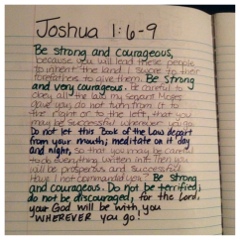 Joshua 1:6-9
Be strong and courageous,
because you will lead these people
to inherit the land I swore to their
forefathers to give them. Be Strong
and very courageous. Be careful to
obey all the law my servant Moses
gave you; do not turn from it to
the right or to the left, that you
may be successful wherever you go.
Do not let this Book of the Law depart
from your mouth; meditate on it day
and night, so that you may be careful
to do everything written in it. Then you
will be prosperous and successful.
Have I not commanded you? Be strong
and courageous. Do not be terrified;
do not be discouraged, for the Lord,
your God will be with you
WHEREVER you go!